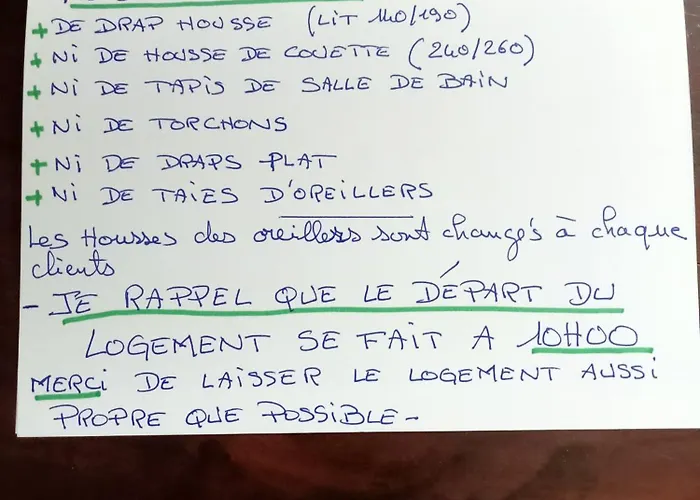 + DE DRAP HOUSSE (LIT 140/190)
+ Ni DE HOUSSE DE COUETTE (240/260)
+ Ni DE TAPIS DE SALLE DE BAIN
+ Ni DE TORCHONS
+ Ni DE DRAPS PLAT
+ Ni DE TAIES D'OREILLERS
Les Housses des oreillers sont changés à chaque
clients
- JE RAPPEL QUE LE DÉPART DU
LOGEMENT SE FAIT A 10H00
MERCi DE LAISSER LE LOGEMENT AUSSI
PROPRE QUE POSSIBLE -